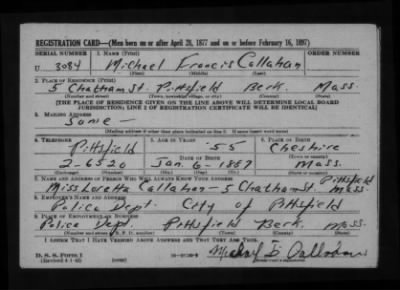 REGISTRATION CARD—(Men born on or after April 28, 1877 and on or before February 16, 1897)
SERIAL NUMBER 1. NAME (Print) ORDER NUMBER
U 3084 Michael Francis Callahan
(First) (Middle) (Last)
2. PLACE OF RESIDENCE (Print)
5 Chatham St. Pittsfield Berk. Mass.
(Number and street) (Town, township, village, or city) (County) (State)
[THE PLACE OF RESIDENCE GIVEN ON THE LINE ABOVE WILL DETERMINE LOCAL BOARD
JURISDICTION; LINE 2 OF REGISTRATION CERTIFICATE WILL BE IDENTICAL]
3. MAILING ADDRESS
Same —
[Mailing address if other than place indicated on line 2. If same insert word same]
4. TELEPHONE 5. AGE IN YEARS 6. PLACE OF BIRTH
Pittsfield 55 Cheshire
DATE OF BIRTH (Town or county)
2-6520 Jan. 6 - 1887 Mass.
(Mo.) (Day) (Yr.) (State or country)
7. NAME AND ADDRESS OF PERSON WHO WILL ALWAYS KNOW YOUR ADDRESS
Miss Loretta Callahan — 5 Chatham St. Pittsfield Mass.
8. EMPLOYER'S NAME AND ADDRESS
Police Dept. City of Pittsfield
9. PLACE OF EMPLOYMENT OR BUSINESS
Police Dept Pittsfield Berk. Mass.
(Number and street or R. F. D. number) (Town) (County) (State)
I AFFIRM THAT I HAVE VERIFIED ABOVE ANSWERS AND THAT THEY ARE TRUE.
D. S. S. Form 1
(Revised 4-1-42) (over) Michael F. Callahan